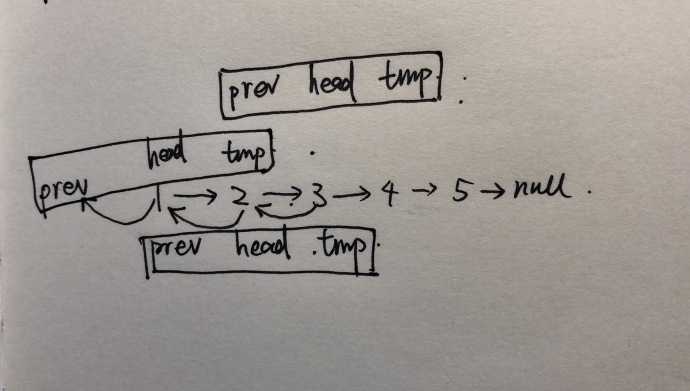 prev head tmp
head tmp
prev
1 → 2 → 3 → 4 → 5 → null .
prev head tmp